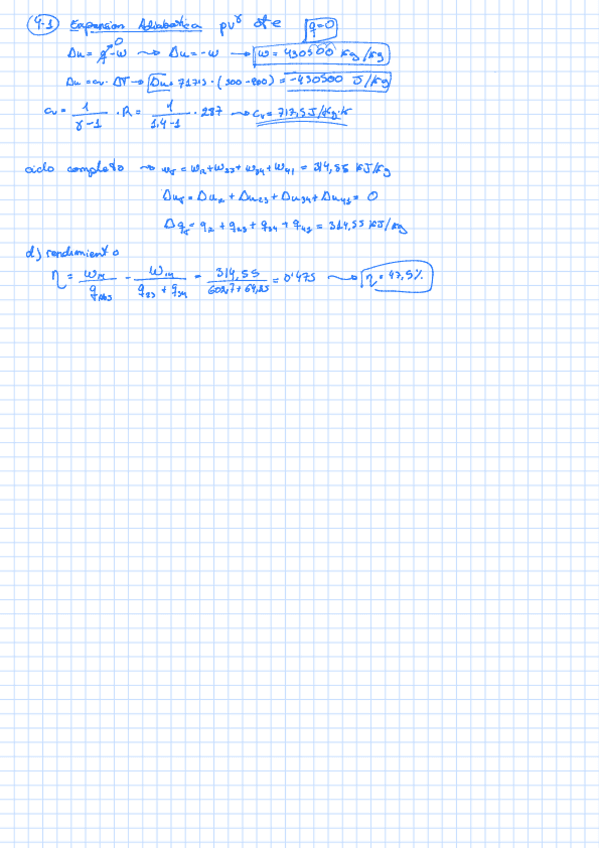 4-1 Expansion Adiabatica pv^γ cte q=0
Δu = q - w → Δu = -w → w = 430500 Kg/Kg
Δu = cv · ΔT → Δu = 717,5 · (300-900) = -430500 J/Kg
cv = 1/(γ-1) · R = 1/(1,4-1) · 287 → cv = 717,5 J/Kg·K
ciclo completo → wT = w12 + w23 + w34 + w41 = 314,55 KJ/Kg
ΔuT = Δu12 + Δu23 + Δu34 + Δu41 = 0
ΔqT = q12 + q23 + q34 + q41 = 314,55 KJ/Kg
d) rendimiento
η = = 314,55 / = 0'475 → η = 47,5%